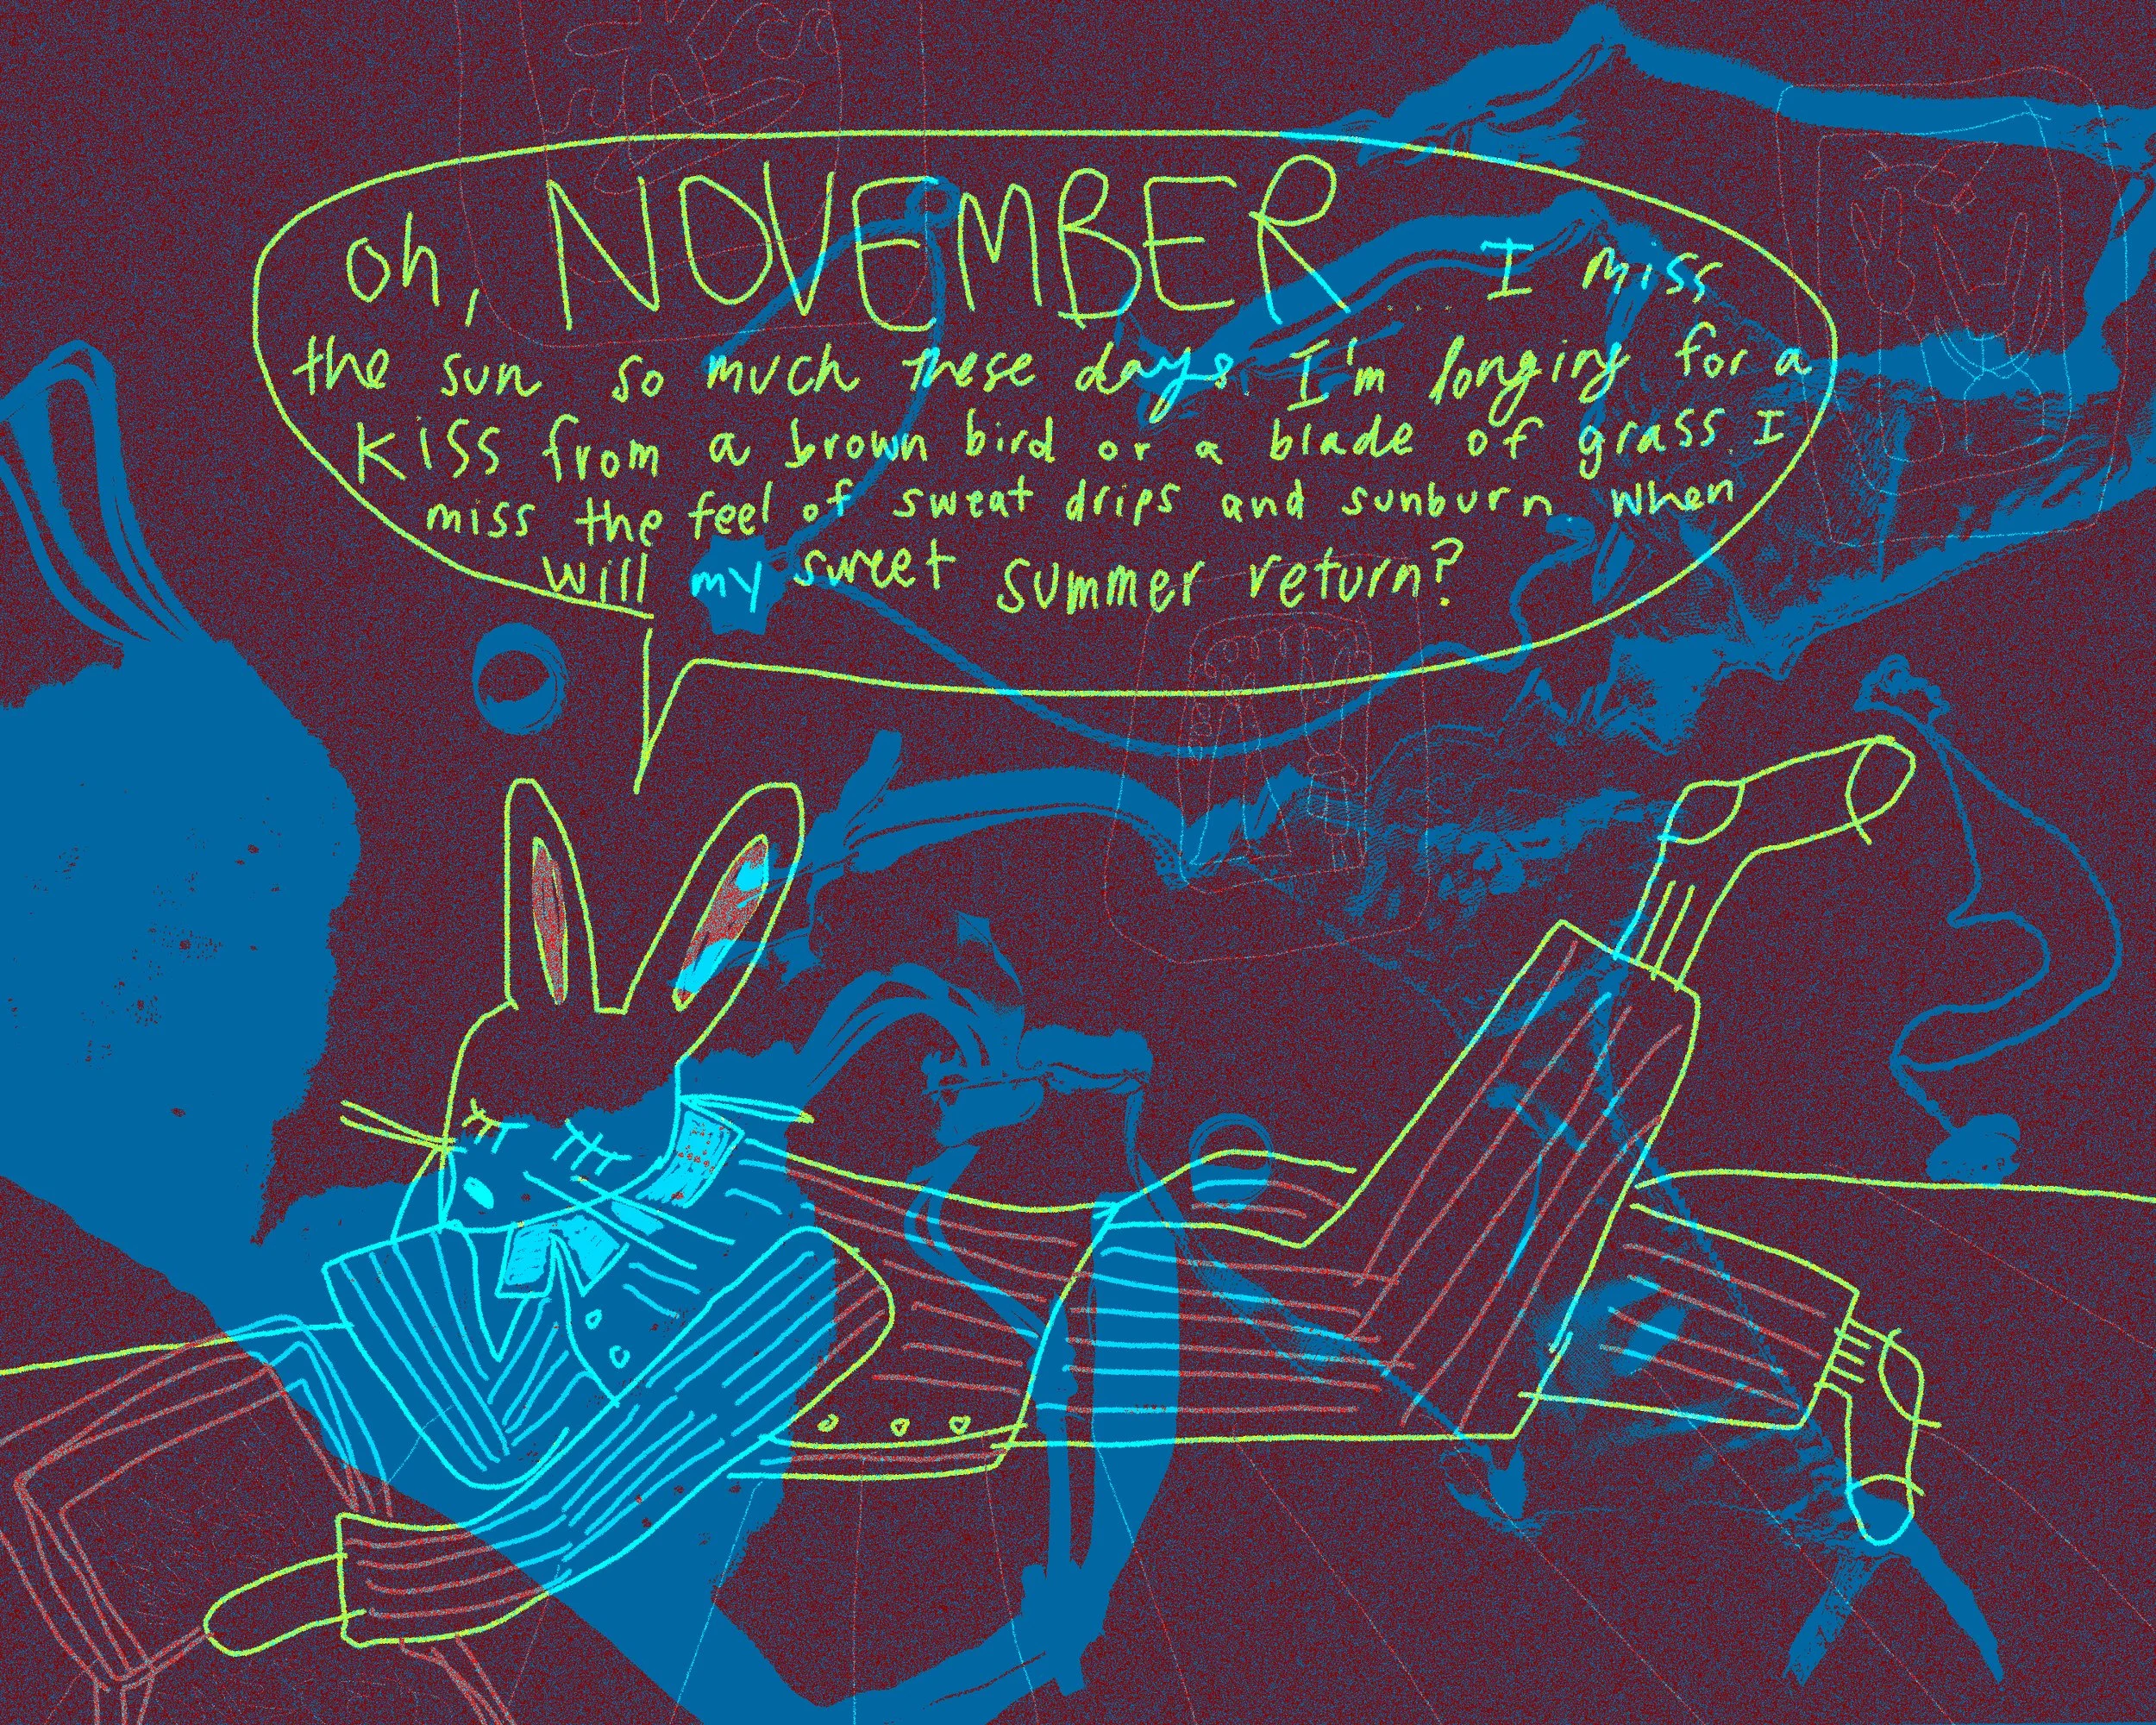 oh, NOVEMBER.... I miss
the sun so much these days. I'm longing for a
kiss from a brown bird or a blade of grass. I
miss the feel of sweat drips and sunburn. when
will my sweet summer return?